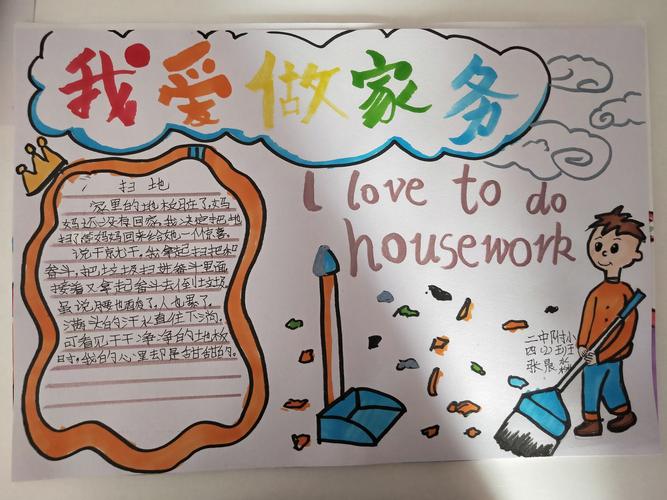 我爱做家务
I love to do
housework
扫地
家里的地板脏了,妈
妈还没有回家,我决定把地
扫了等妈妈回来给她一个惊喜。
说干就干,我拿起扫把和
畚斗,把垃圾扫进畚斗里面,
接着又拿起畚斗去倒垃圾,
虽说腰也酸了,人也累了,
满头的汗水直往下淌,
可看见干干净净的地板
时,我的心里却是甜甜的。
二中附小
四(2)班
张晨